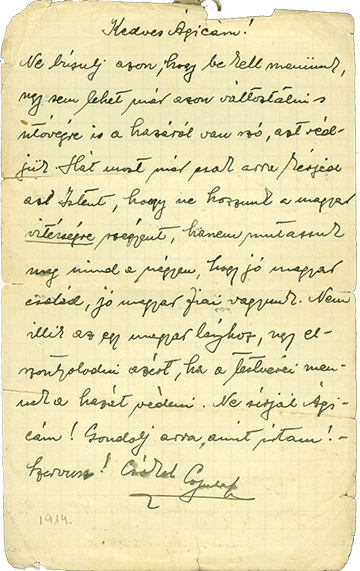 Kedves Ágicám!
Ne búsulj azon, hogy be kell mennünk,
úgy sem lehet már azon változtatni s
utóvégre is a hazáról van szó, azt véd-
jük. Hát most már csak arra kérjed
azt Istent, hogy ne hozzunk a magyar
vitézségre szégyent, hanem mutassuk
meg mind a négyen, hogy jó magyar
család, jó magyar fiai vagyunk. Nem
illik az egy magyar lányhoz, úgy el-
szontyolodni azért, ha a testvérei men-
nek a hazát védeni. Ne sírjál Ági-
cám! Gondolj arra, amit írtam! -
Szervusz! Csókol
1914.